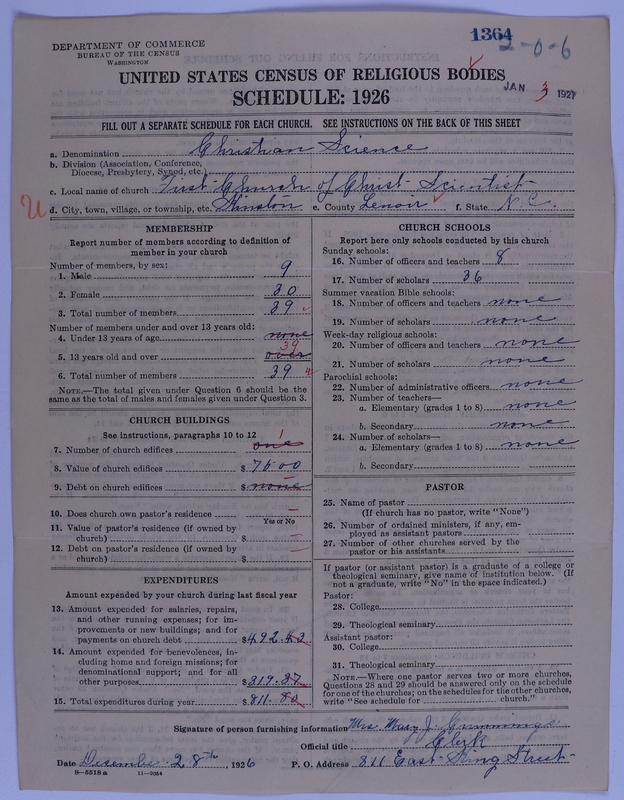 1364
2-0-6
DEPARTMENT OF COMMERCE
BUREAU OF THE CENSUS
WASHINGTON
UNITED STATES CENSUS OF RELIGIOUS BODIES
JAN 3 1927
SCHEDULE: 1926
FILL OUT A SEPARATE SCHEDULE FOR EACH CHURCH. SEE INSTRUCTIONS ON THE BACK OF THIS SHEET
a. Denomination Christian Science
b. Division (Association, Conference, Diocese, Presbytery, Synod, etc.)
c. Local name of church First Church of Christ Scientist
U d. City, town, village, or township, etc. Kinston e. County Lenoir f. State N.C.
MEMBERSHIP
Report number of members according to definition of
member in your church
Number of members, by sex:
1. Male 9
2. Female 30
3. Total number of members 39
Number of members under and over 13 years old:
4. Under 13 years of age none
5. 13 years old and over 39 over
6. Total number of members 39
NOTE.—The total given under Question 6 should be the
same as the total of males and females given under Question 3.
CHURCH BUILDINGS
See instructions, paragraphs 10 to 12
7. Number of church edifices one 1
8. Value of church edifices $ 7500
9. Debt on church edifices $ none
10. Does church own pastor's residence —
Yes or No
11. Value of pastor's residence (if owned by
church) $ —
12. Debt on pastor's residence (if owned by
church) $ —
EXPENDITURES
Amount expended by your church during last fiscal year
13. Amount expended for salaries, repairs,
and other running expenses; for im-
provements or new buildings; and for
payments on church debt $ 492.43
14. Amount expended for benevolences, in-
cluding home and foreign missions; for
denominational support; and for all
other purposes $ 319.37
15. Total expenditures during year $ 811.80
CHURCH SCHOOLS
Report here only schools conducted by this church
Sunday schools:
16. Number of officers and teachers 8
17. Number of scholars 36
Summer vacation Bible schools:
18. Number of officers and teachers none
19. Number of scholars none
Week-day religious schools:
20. Number of officers and teachers none
21. Number of scholars none
Parochial schools:
22. Number of administrative officers none
23. Number of teachers—
a. Elementary (grades 1 to 8) none
b. Secondary none
24. Number of scholars—
a. Elementary (grades 1 to 8) none
b. Secondary
PASTOR
25. Name of pastor
(If church has no pastor, write "None")
26. Number of ordained ministers, if any, em-
ployed as assistant pastors
27. Number of other churches served by the
pastor or his assistants
If pastor (or assistant pastor) is a graduate of a college or
theological seminary, give name of institution below. (If
not a graduate, write "No" in the space indicated.)
Pastor:
28. College
29. Theological seminary
Assistant pastor:
30. College
31. Theological seminary
NOTE.—Where one pastor serves two or more churches,
Questions 28 and 29 should be answered only on the schedule
for one of the churches; on the schedules for the other churches,
write "See schedule for church."
Signature of person furnishing information Mrs. Mary J. Cummings
Official title Clerk
Date December 28th, 1926 P. O. Address 811 East King Street
8—5518 a 11—9054